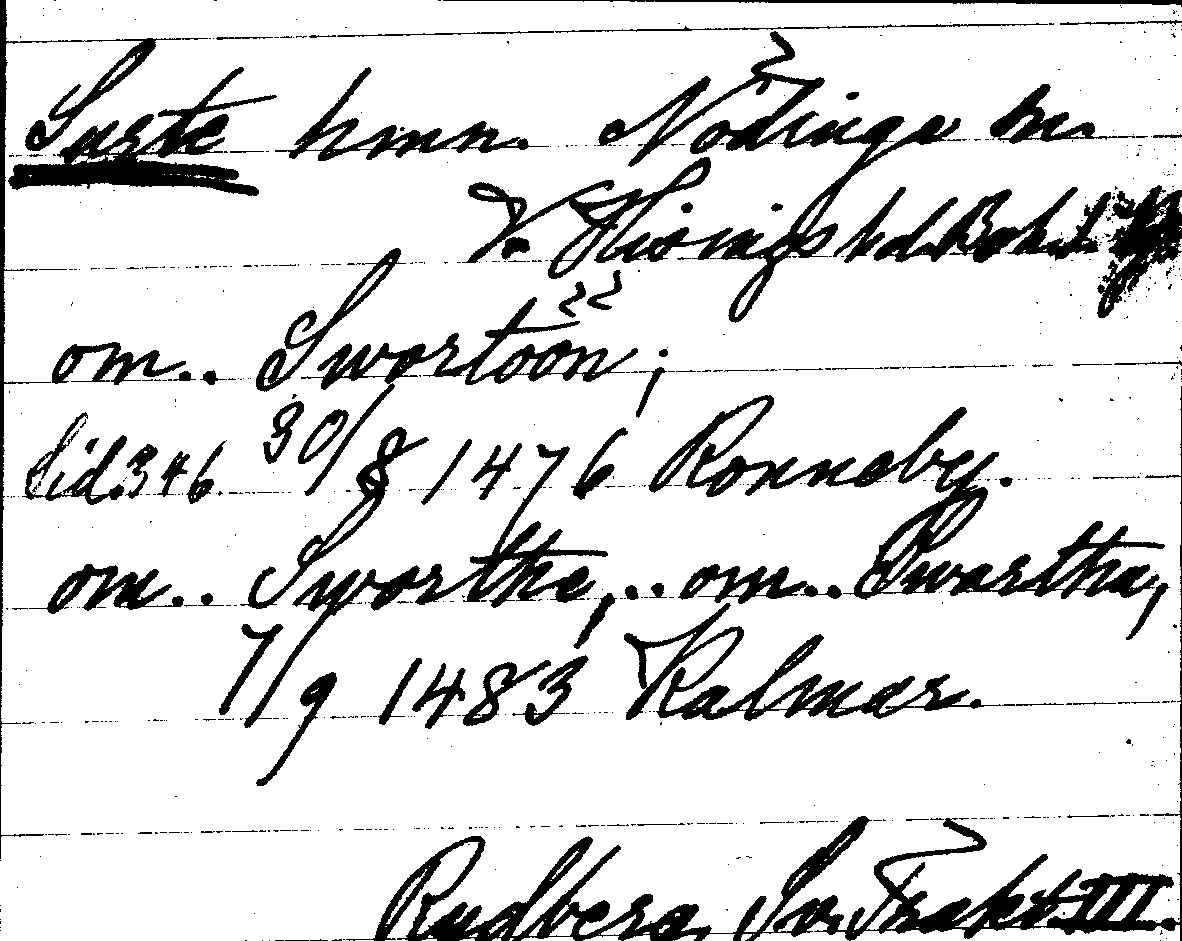 Surte hmn. Nödinge sn.
V. Hisings hd. Boh. l.
om.. Swortöön;
sid. 346 30/8 1476 Ronneby.
om.. Sworthe,.. om.. Swartha,
7/9 1483 Kalmar.
Rydberg, Sv. Trakt. III.